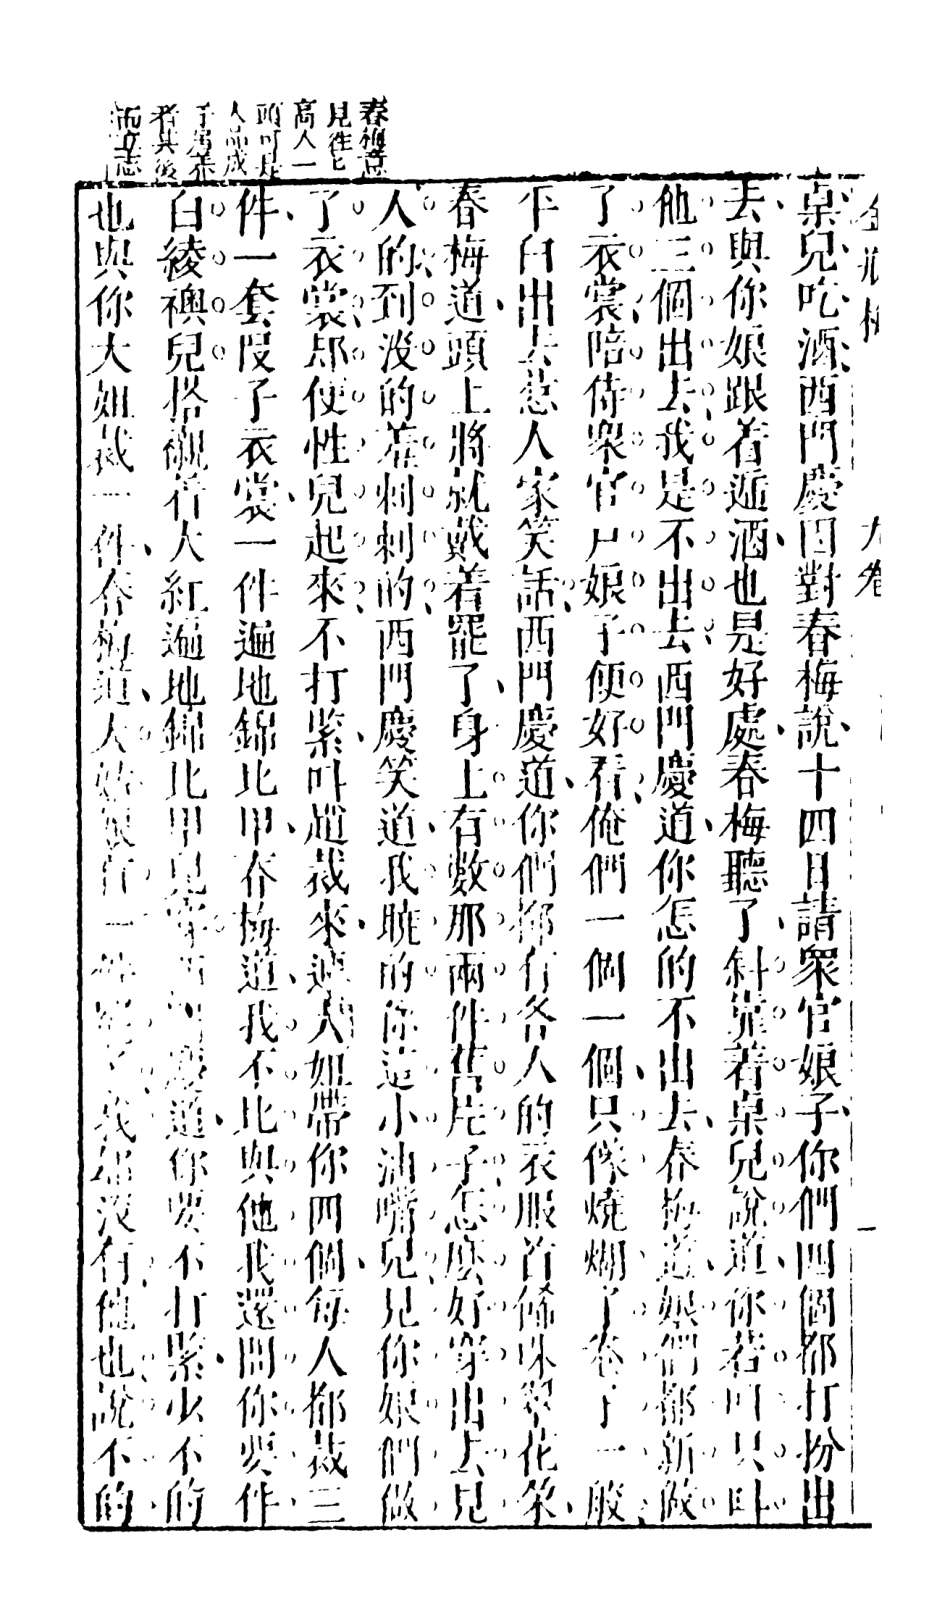 金瓶梅 九卷 一
桌兒吃酒西門慶因對春梅說十四日請眾官娘子你們四個都打扮出
去與你娘跟着遞酒也是好處春梅聽了斜靠着桌兒說道你若叫只叫
他三個出去我是不出去西門慶道你怎的不出去春梅道娘們都新做
了衣裳陪侍眾官戶娘子便好看俺們一個一個只像燒煳了卷子一般
平白出去惹人家笑話西門慶道你們都有各人的衣服首飾珠翠花朵
春梅道頭上將就戴着罷了身上有數那兩件舊片子怎麽好穿出去見
人的到没的羞剌剌的西門慶笑道我曉的你這小油嘴兒見你娘們做
了衣裳却便性兒起來不打緊叫趙裁來連大姐帶你四個每人都裁三
件一套叚子衣裳一件遍地錦比甲春梅道我不比與他我還問你要件
白綾襖兒搭襯着大紅遍地錦比甲兒穿西門慶道你要不打緊少不的
也與你大姐裁一件春梅道大姑娘有一件罷了我却没有他也說不的
春梅意
見徃上
高人一
頭可是
人品成
于居养
者其後
而立志